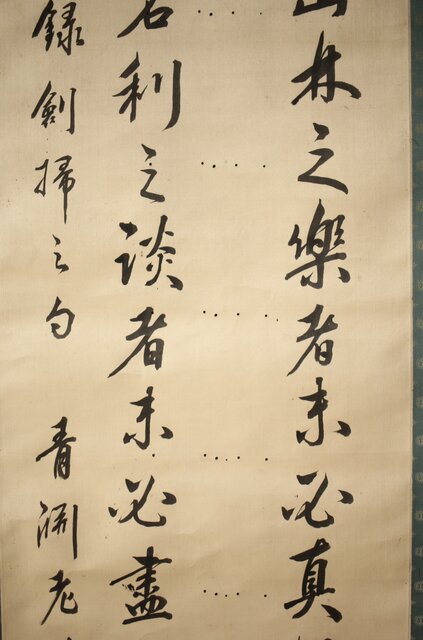 山林之樂者未必真
名利之談者未必盡
録劍掃之句 青淵老